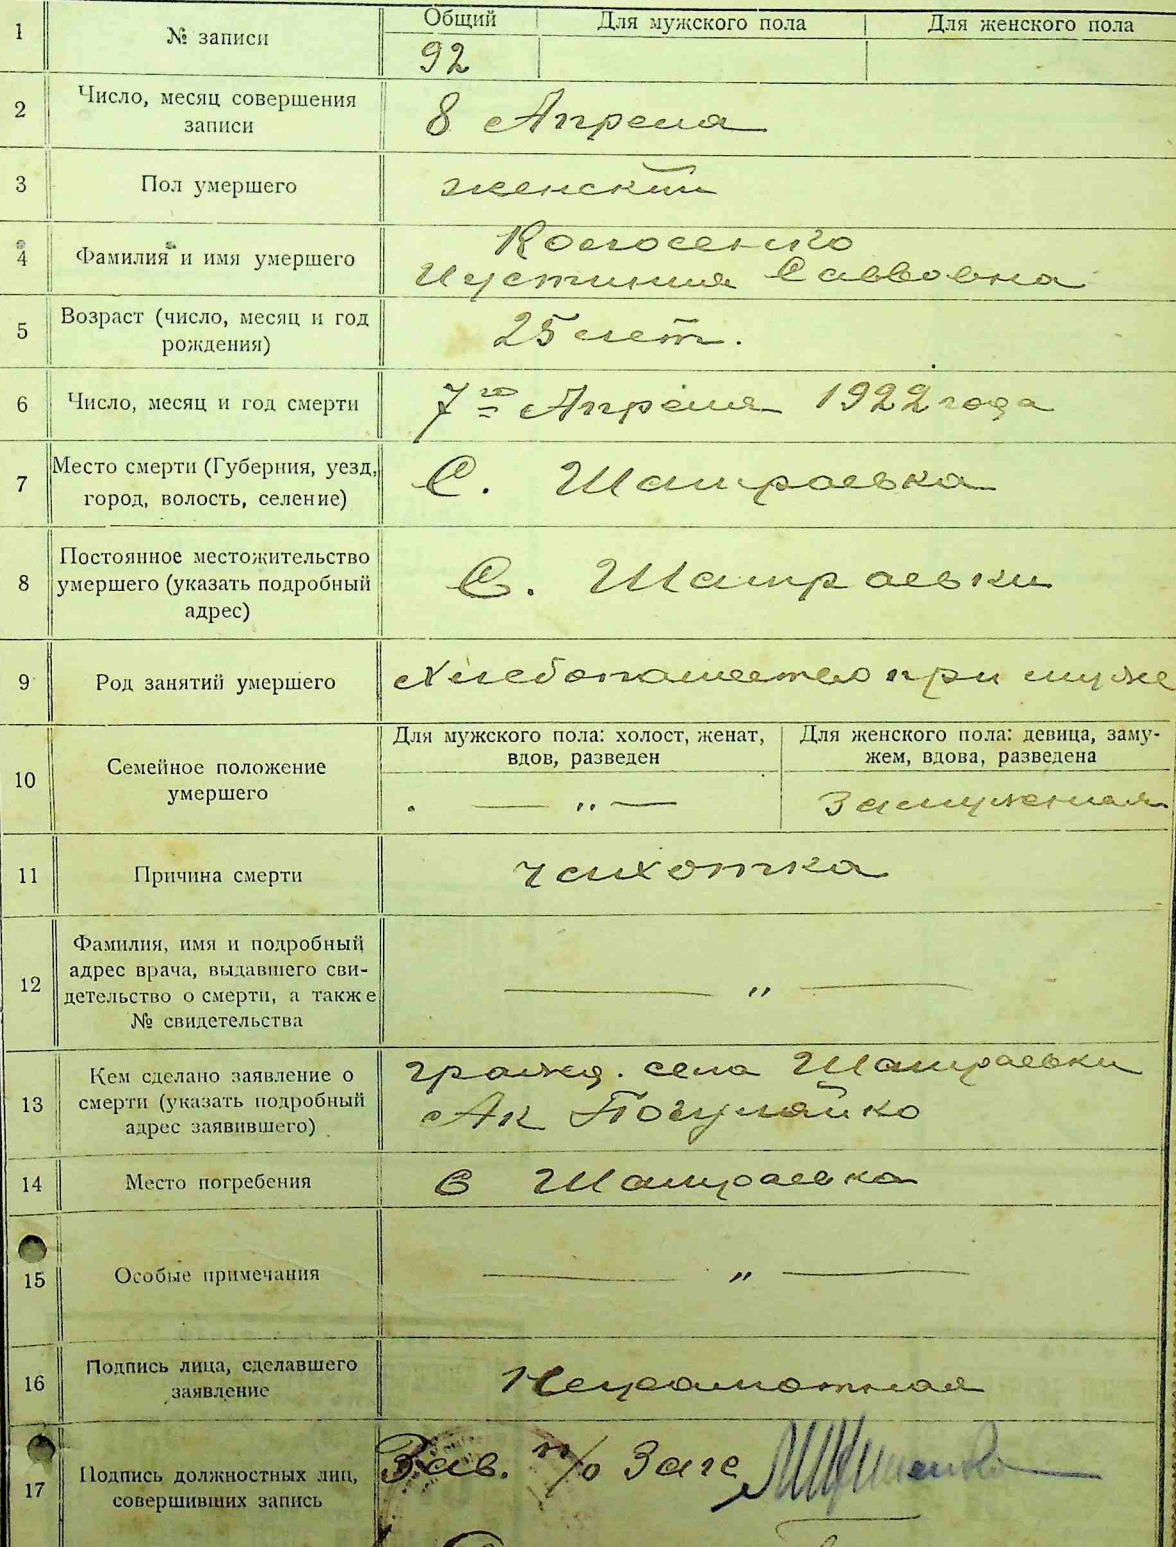 1
№ записи
Общий
Для мужского пола
Для женского пола
92
2
Число, месяц совершения
записи
8 Апреля
3
Пол умершего
женский
4
Фамилия и имя умершего
Иустиния Савовна
5
Возраст (число, месяц и год
рождения)
25 лет.
6
Число, месяц и год смерти
7го Апреля 1922 года
7
Место смерти (Губерния, уезд,
город, волость, селение)
С. Шамраевка
8
Постоянное местожительство
умершего (указать подробный
адрес)
С. Шамраевки
9
Род занятий умершего
Хлебопашество при муже
10
Семейное положение
умершего
Для мужского пола: холост, женат,
вдов, разведен
Для женского пола: девица, заму-
жем, вдова, разведена
— „ —
Замужная
11
Причина смерти
чихотка
12
Фамилия, имя и подробный
адрес врача, выдавшего сви-
детельство о смерти, а также
№ свидетельства
— „ —
13
Кем сделано заявление о
смерти (указать подробный
адрес заявившего)
гражд. села Шамраевки
Ак Погуляйко
14
Место погребения
С Шамраевка
15
Особые примечания
— „ —
16
Подпись лица, сделавшего
заявление
Неграмотная
17
Подпись должностных лиц,
совершивших запись
Зав. п/о Загс